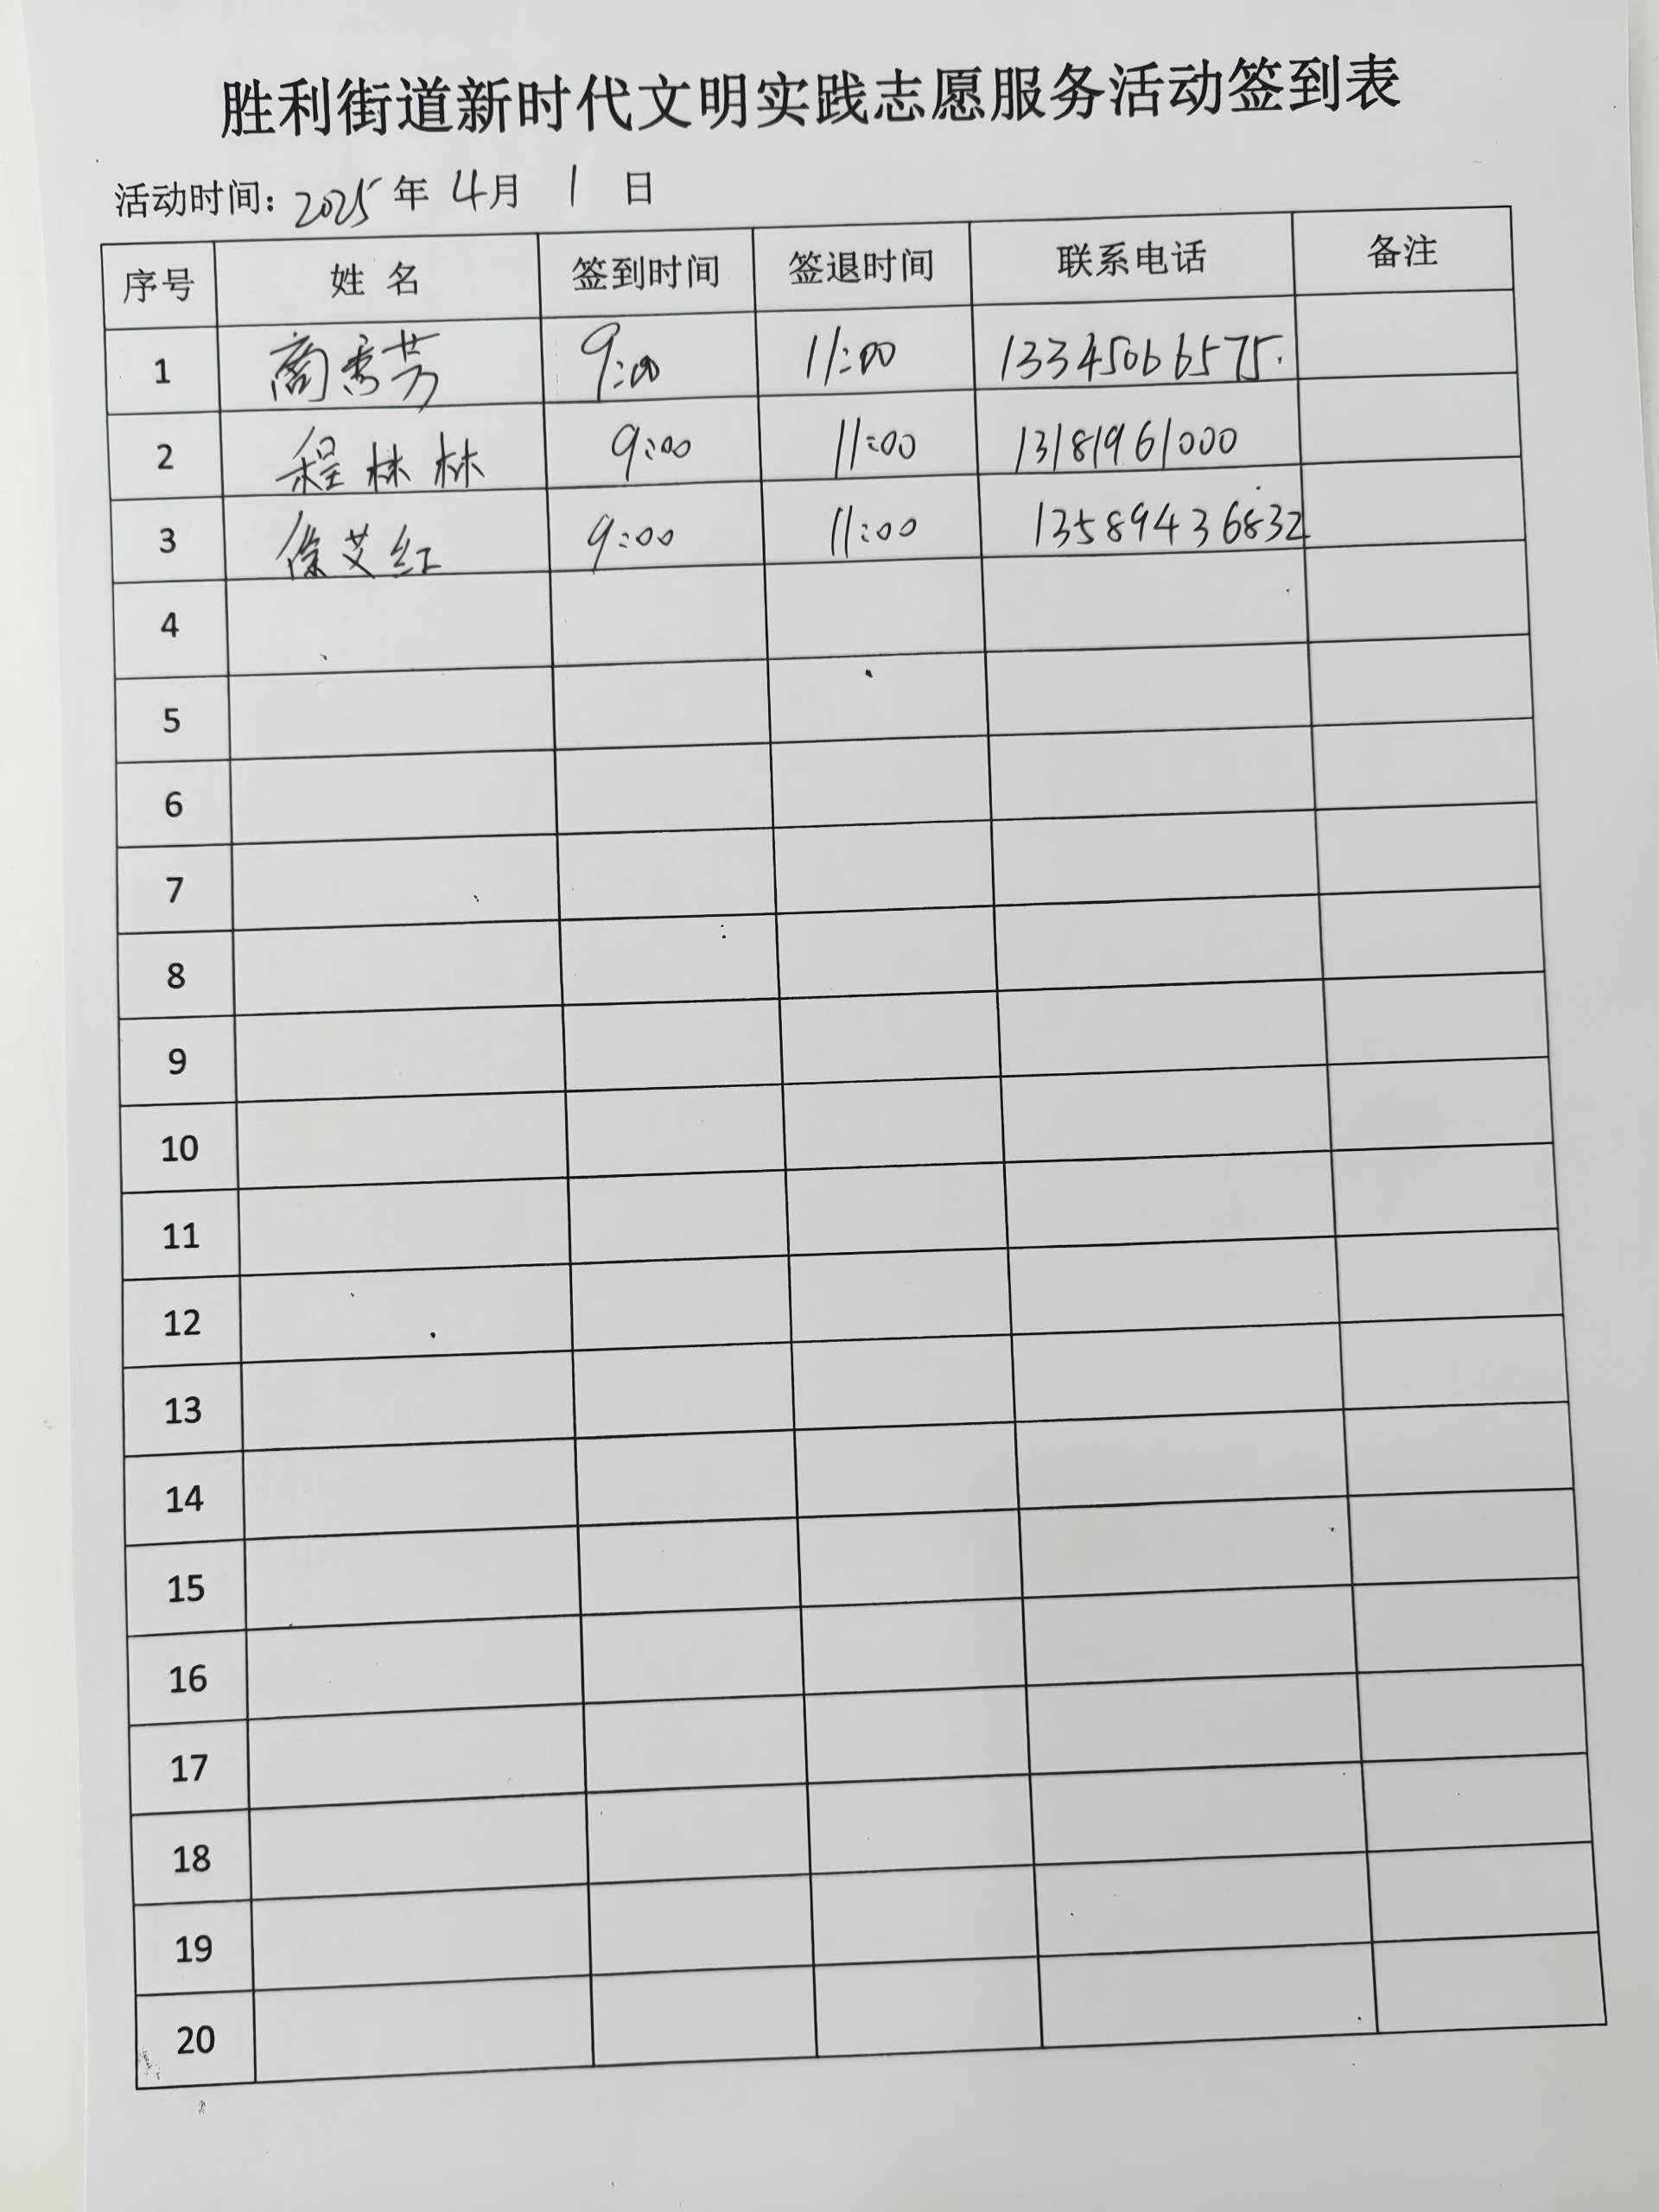 胜利街道新时代文明实践志愿服务活动签到表
活动时间: 2025年 4月 1 日
序号 姓 名 签到时间 签退时间 联系电话 备注
1 商秀芳 9:00 11:00 13345066575.
2 程林林 9:00 11:00 13181961000
3 徐艾红 9:00 11:00 13589436832
4
5
6
7
8
9
10
11
12
13
14
15
16
17
18
19
20